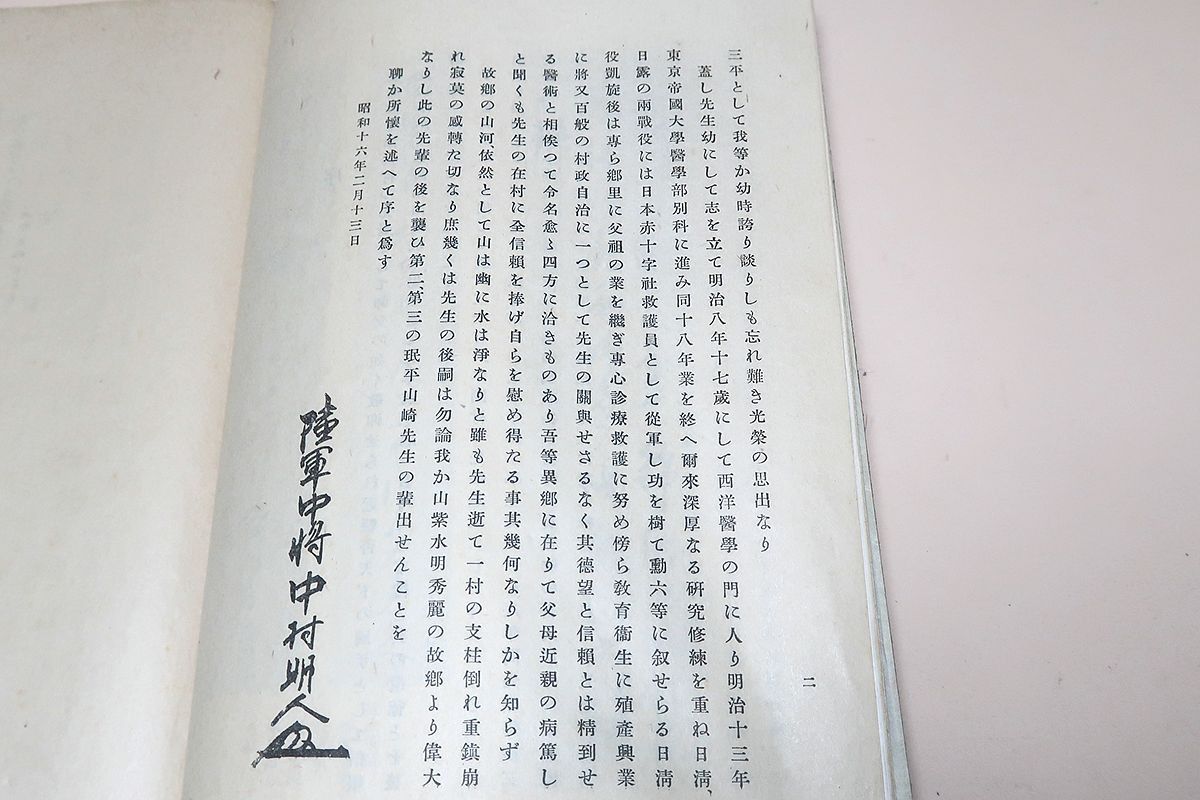 三平として我等か幼時誇り談りしも忘れ難き光榮の思出なり
蓋し先生幼にして志を立て明治八年十七歳にして西洋醫學の門に入り明治十三年
東京帝國大學醫學部別科に進み同十八年業を終へ爾來深厚なる硏究修練を重ね日淸、
日露の兩戰役には日本赤十字社救護員として從軍し功を樹て勳六等に叙せらる日淸
役凱旋後は専ら鄕里に父祖の業を繼ぎ專心診療救護に努め傍ら敎育衞生に殖產興業
に將又百般の村政自治に一つとして先生の關與せさるなく其德望と信賴とは精到せ
る醫術と相俟つて令名愈〻四方に洽きものあり吾等異鄕に在りて父母近親の病篤し
と聞くも先生の在村に全信賴を捧げ自らを慰め得たる事其幾何なりしかを知らず
故鄕の山河、依然として山は幽に水は淨なりと雖も先生逝て一村の支柱倒れ重鎭崩
れ寂莫の感轉た切なり庶幾くは先生の後嗣は勿論我か山紫水明秀麗の故鄕より偉大
なりし此の先輩の後を襲ひ第二、第三の珉平山崎先生の輩出せんことを
聊か所懷を述へて序と爲す
昭和十六年二月十三日
陸軍中將中村明人
二